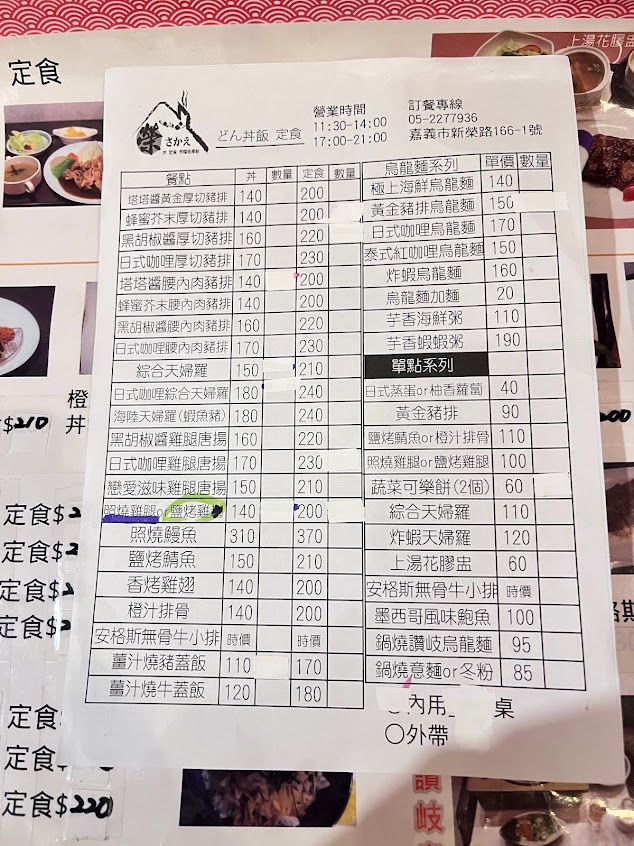 定食
上湯花膠盅
榮
さかえ
どん丼飯 定食
營業時間
11:30-14:00
17:00-21:00
訂餐專線
05-2277936
嘉義市新榮路166-1號
餐點 丼 數量 定食 數量
塔塔醬黃金厚切豬排 140 200
蜂蜜芥末厚切豬排 140 200
黑胡椒醬厚切豬排 160 220
日式咖哩厚切豬排 170 230
塔塔醬腰內肉豬排 140 200
蜂蜜芥末腰內肉豬排 140 200
黑胡椒醬腰內肉豬排 160 220
日式咖哩腰內肉豬排 170 230
綜合天婦羅 150 210
日式咖哩綜合天婦羅 180 240
海陸天婦羅(蝦魚豬) 180 240
黑胡椒醬雞腿唐揚 160 220
日式咖哩雞腿唐揚 170 230
戀愛滋味雞腿唐揚 150 210
照燒雞腿or鹽烤雞 140 200
照燒鰻魚 310 370
鹽烤鯖魚 150 210
香烤雞翅 140 200
橙汁排骨 140 200
安格斯無骨牛小排 時價 時價
薑汁燒豬蓋飯 110 170
薑汁燒牛蓋飯 120 180
烏龍麵系列 單價 數量
極上海鮮烏龍麵 140
黃金豬排烏龍麵 150
日式咖哩烏龍麵 170
泰式紅咖哩烏龍麵 150
炸蝦烏龍麵 160
烏龍麵加麵 20
芋香海鮮粥 110
芋香蝦蝦粥 190
單點系列
日式蒸蛋or柚香蘿蔔 40
黃金豬排 90
鹽烤鯖魚or橙汁排骨 110
照燒雞腿or鹽烤雞腿 100
蔬菜可樂餅(2個) 60
綜合天婦羅 110
炸蝦天婦羅 120
上湯花膠盅 60
安格斯無骨牛小排 時價
墨西哥風味鮑魚 100
鍋燒讚岐烏龍麵 95
鍋燒意麵or冬粉 85
○內用 桌
○外帶
$210
橙
丼
200
定食$2
定食$2
定食$2
定食$2
定食$
定食$
定食$220
讚岐